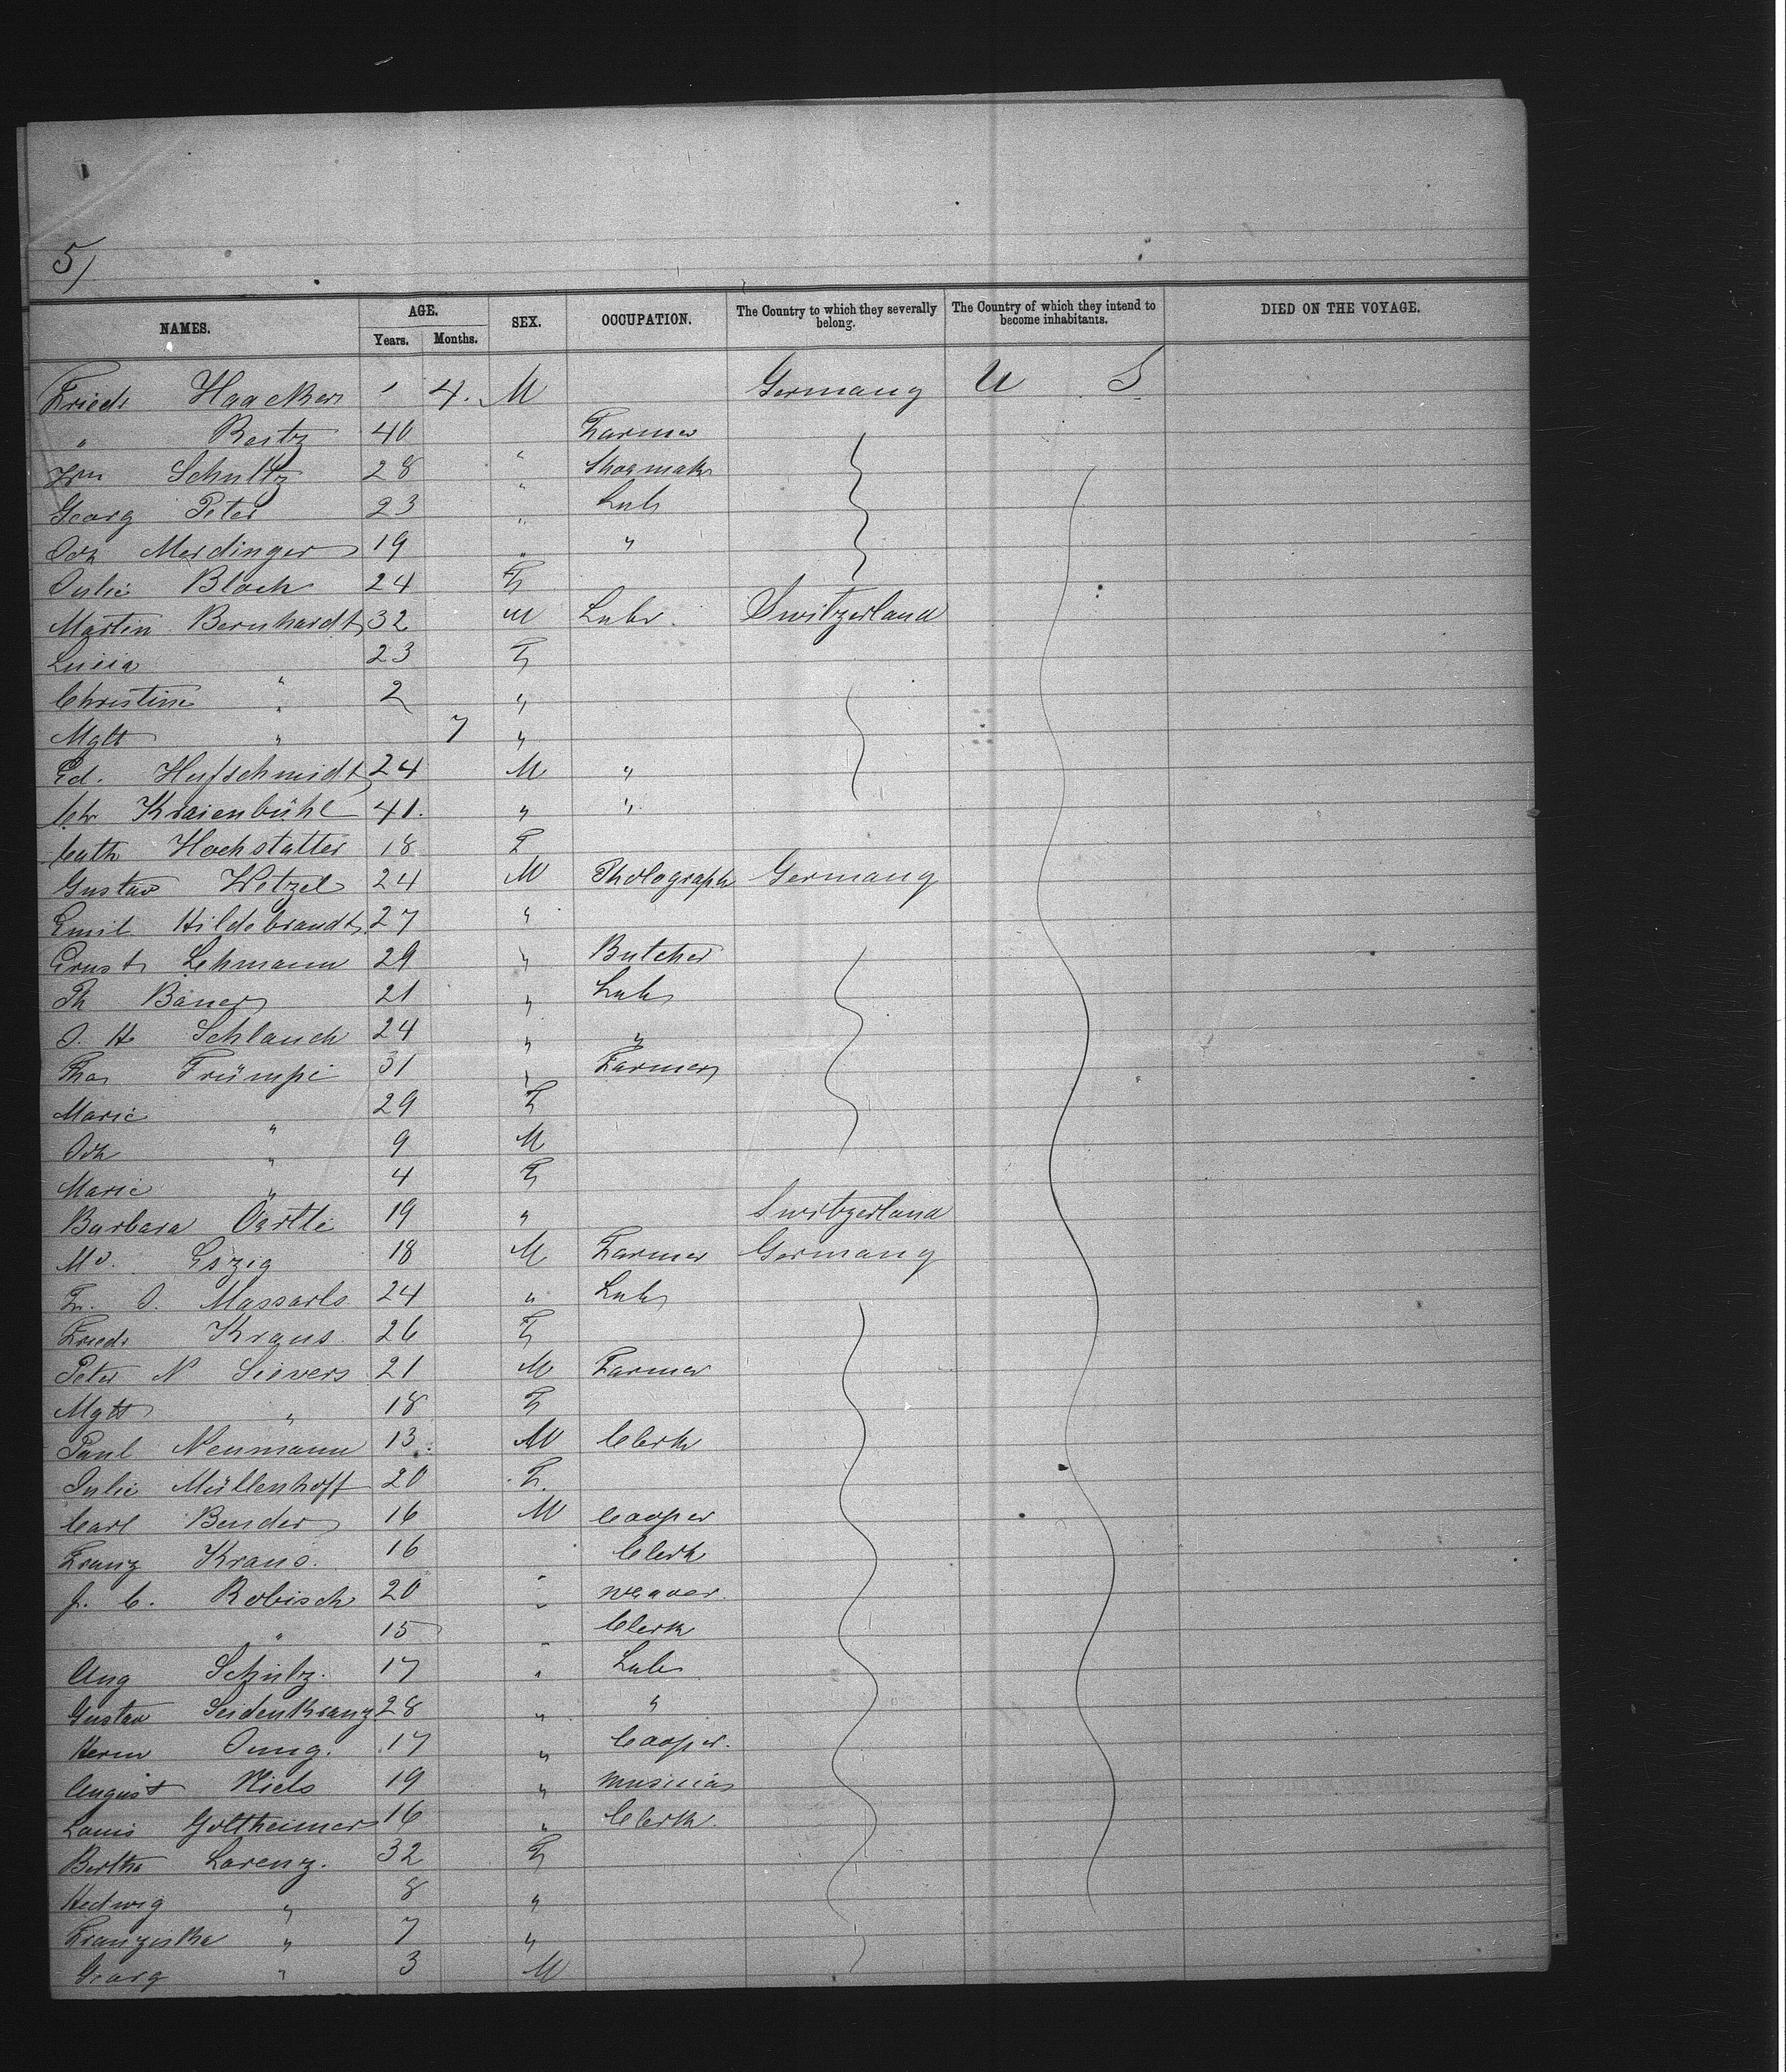 5/
NAMES. AGE. Years. Months. SEX. OCCUPATION. The Country to which they severally belong. The Country of which they intend to become inhabitants. DIED ON THE VOYAGE.
Friedr Haacker 1 4. M Germany U S
" Reitz 40 Farmer
Wm Schultz 28 " Shoemakr
Georg Peter 23 " Labr
Joh Merdinger 19 " "
Julie Bloch 24 F
Martin Bernhardt 32 M Labr. Switzerland
Lucia " 23 F
Christine " 2 "
Mgtt " 7 "
Ed. Hufschmidt 24 M "
Chr Kraienbühl 41. " "
Cath Hochstatter 18 F
Gustav Wetzel 24 M Photograph Germany
Emil Hildebrandt 27 "
Ernst Lehmann 29 " Butcher
Th Bauer 21 " Labr
J. H Schlauch 24 " "
Thos Trümpi 31 " Farmer
Marie " 29 F
Joh " 9 M
Marie " 4 F
Barbara Oertli 19 " Switzerland
18 M Farmer Germany
F. J. 24 " Labr
Friedr Kraus 26 F
Peter N Sievers 21 M Farmer
Mgtt " 18 F
Paul Neumann 13 M Clerk
Julie Müllenhoff 20 F.
Carl Bender 16 M Cooper
Franz Kraus. 16 Clerk
J. C. Robisch 20 " weaver.
" 15 " Clerk
Aug Schulz. 17 " Labr
Gustav Seidenkranz 28 " "
Herm Jung. 17 " Cooper.
August Niels 19 " musician
Louis Goltheimer 16 " Clerk.
Bertha Lorenz. 32 F
Hedwig " 8 "
Franziska " 7 "
Georg " 3 M